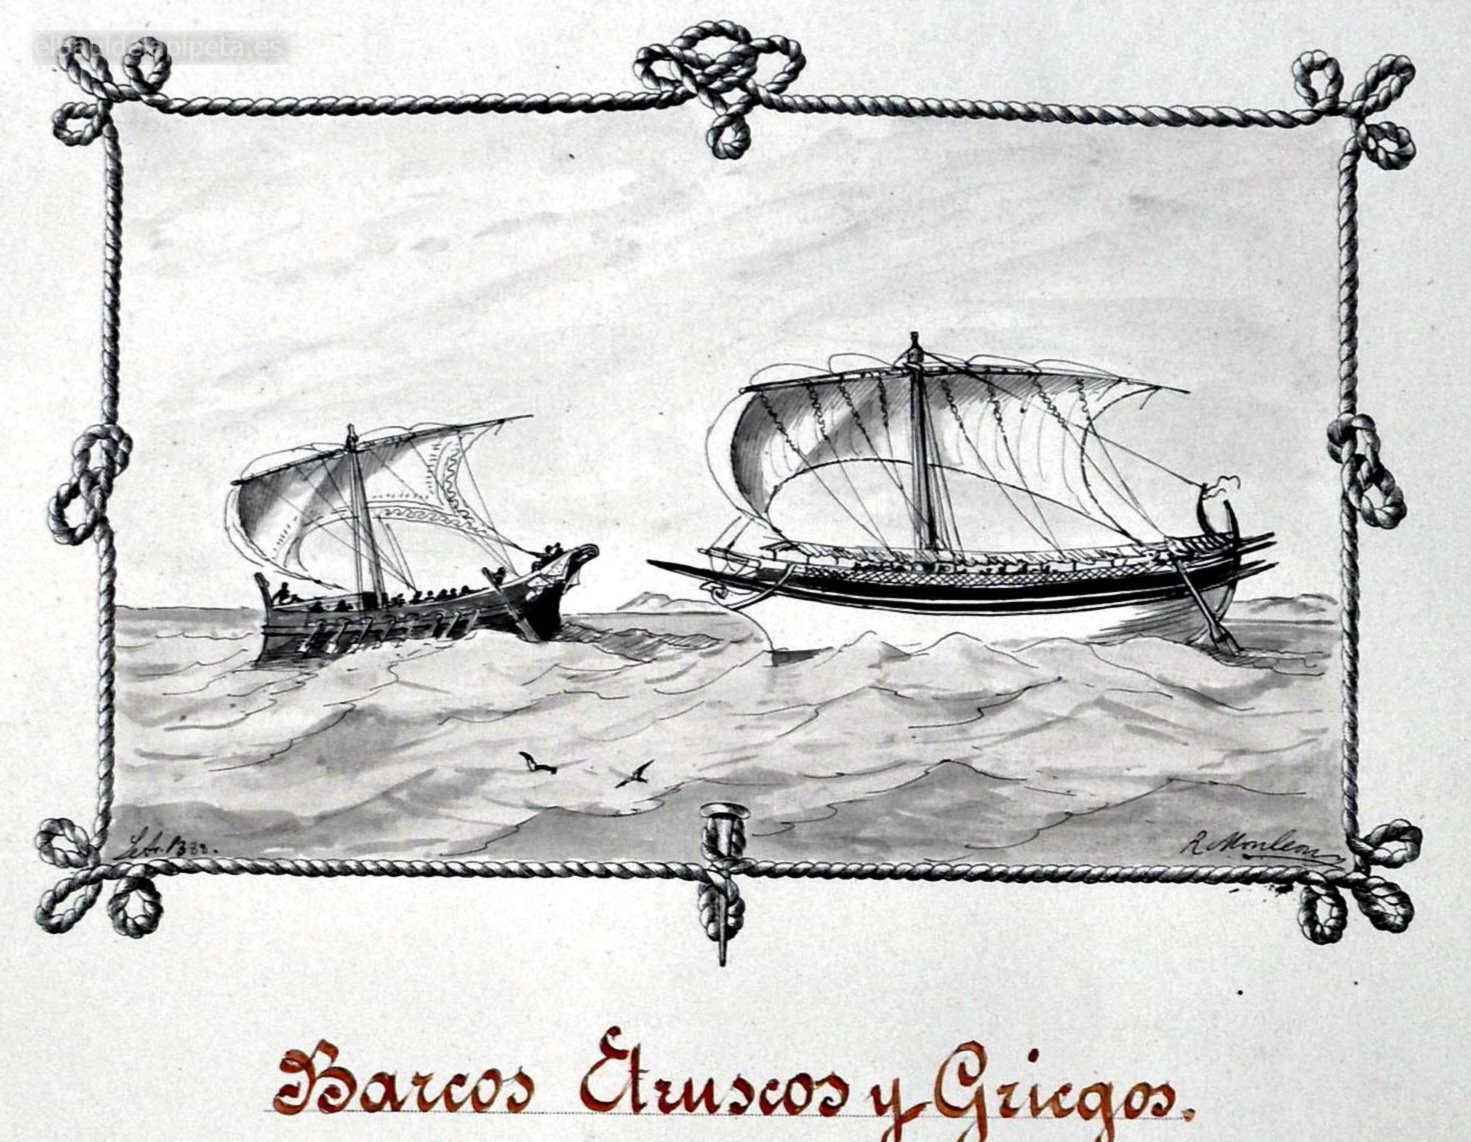 elbauldelapipeta.es
R. Monleon
Barcos Etruscos y Griegos.